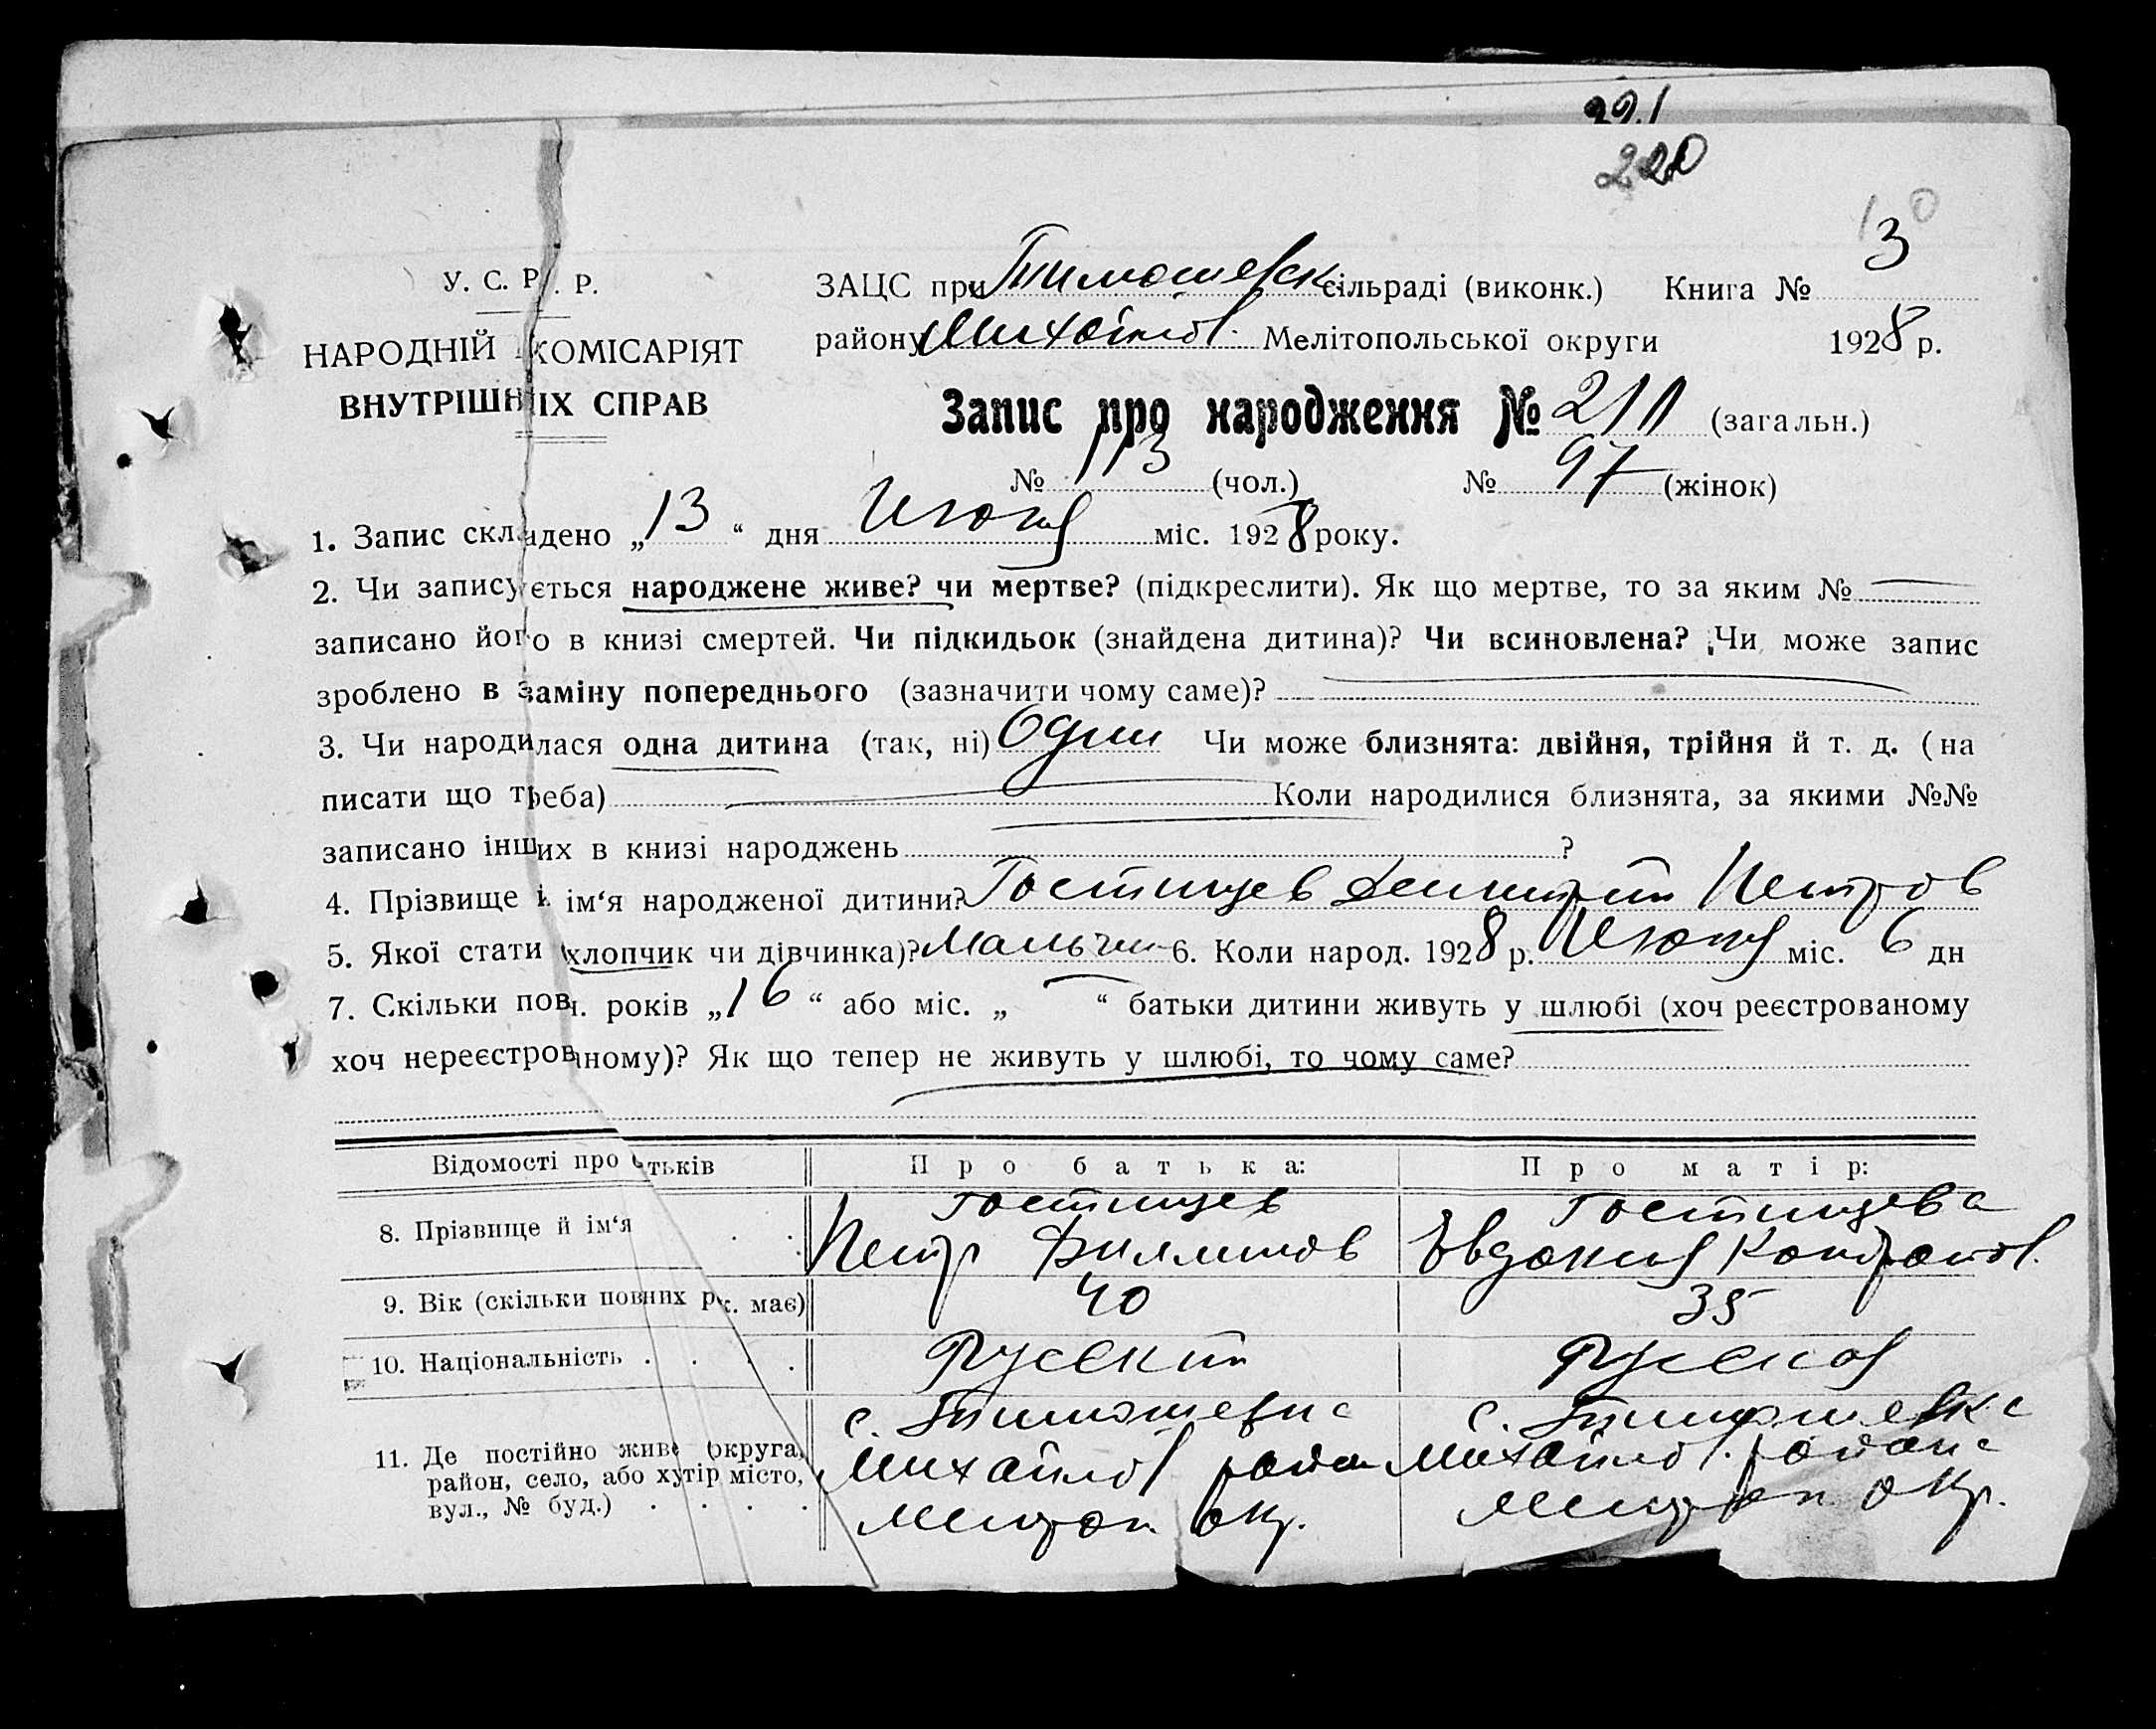 221
220
3
У. С. Р. Р.
НАРОДНІЙ КОМІСАРІЯТ
ВНУТРІШНІХ СПРАВ
ЗАЦС при Тимошевск сільраді (виконк.) Книга №
району Михайлов. Мелітопольської округи 1928 р.
Запис про народження № 210 (загальн.)
№ 113 (чол.) № 97 (жінок)
1. Запис складено „13“ дня Июня міс. 1928 року.
2. Чи записується народжене живе? чи мертве? (підкреслити). Як що мертве, то за яким №
записано його в книзі смертей. Чи підкидьок (знайдена дитина)? Чи всиновлена? Чи може запис
зроблено в заміну попереднього (зазначити чому саме)?
3. Чи народилася одна дитина (так, ні) Один Чи може близнята: двійня, трійня й т. д. (на
писати що треба) Коли народилися близнята, за якими №№
записано інших в книзі народжень ?
4. Прізвище і ім‘я народженої дитини? Гостищев Димитрий Петров
5. Якої стати (хлопчик чи дівчинка)? Мальчик 6. Коли народ. 1928 р. Июня міс. 6 дн
7. Скільки повн. років „16“ або міс. „ “ батьки дитини живуть у шлюбі (хоч реєстрованому
хоч нереєстрованому)? Як що тепер не живуть у шлюбі, то чому саме?
Відомості про батьків Про батька: Про матір:
8. Прізвище й ім‘я . .
Гостищев
Петр Филипов
Гостищева
Евдокия Кондратов.
9. Вік (скільки повних рок. має) 40 35
10. Національність . . . . Русский Русская
11. Де постійно живе (округа,
район, село, або хутір, місто,
вул., № буд.) . . . .
с. Тимошевка
Михайлов района
Мелитоп. окр.
с. Тимошевка
Михайлов. района
Мелитоп. окр.